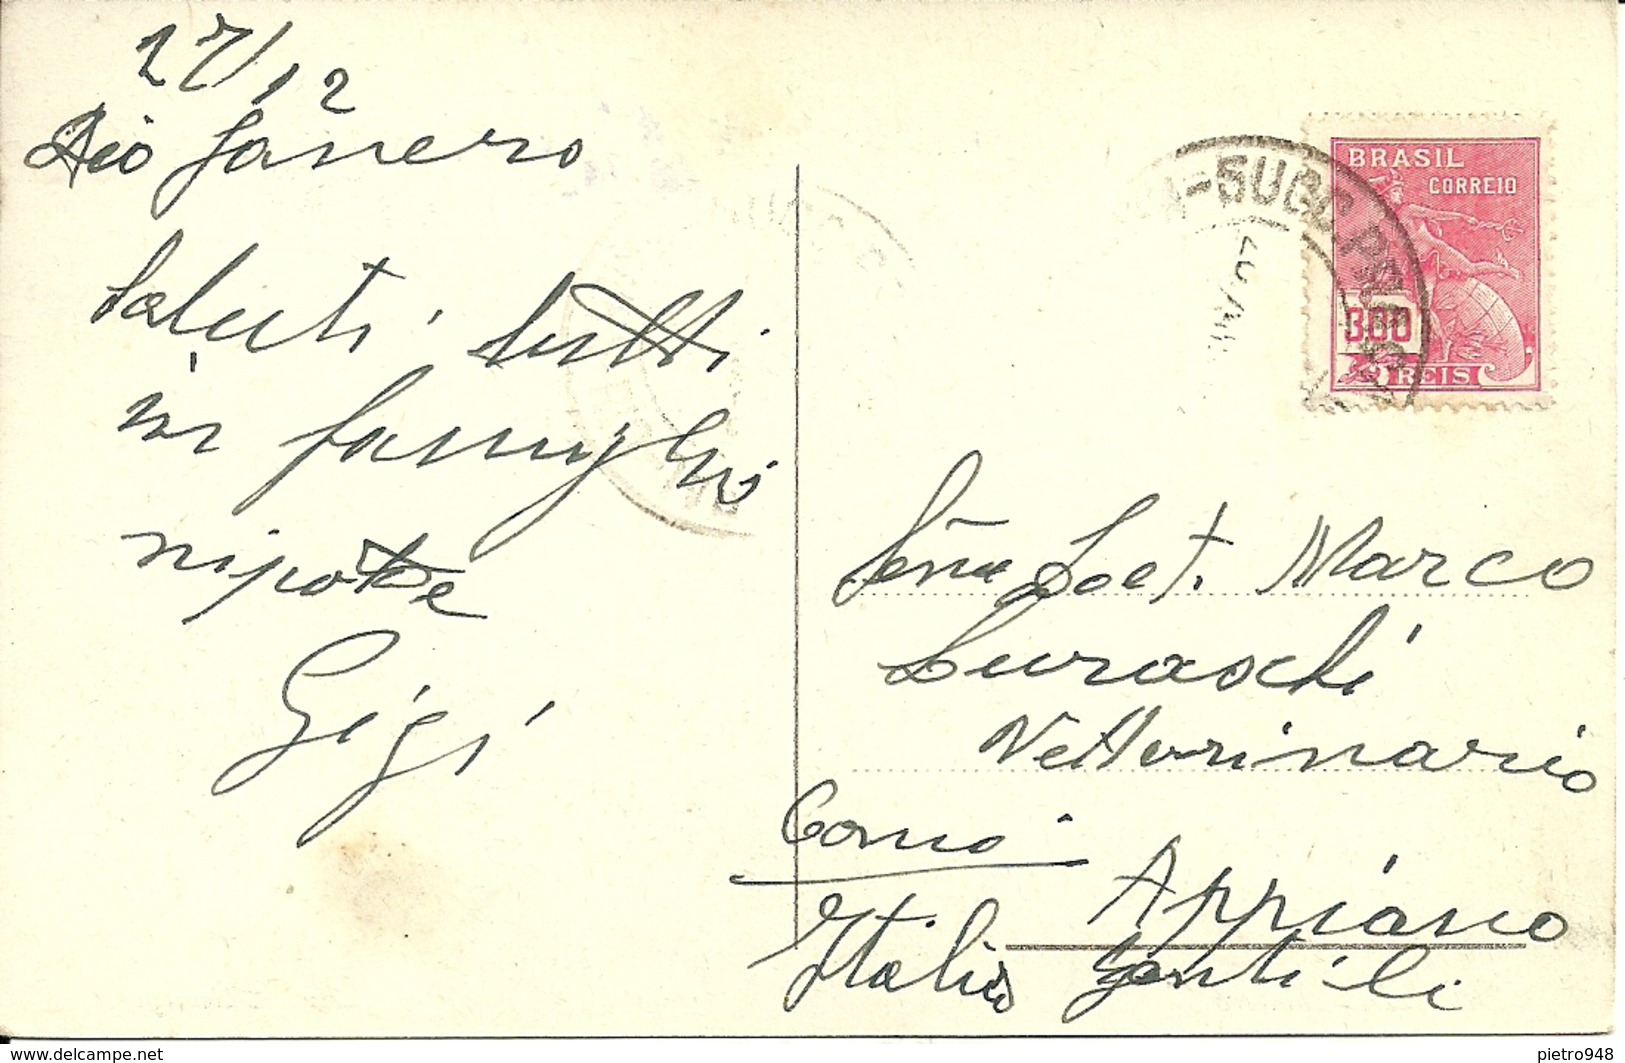 27/12
Rio Janero
Saluti tutti
in famiglia
nipote
Gigi
BRASIL
CORREIO
300
REIS
-SUCC.
Marco
Luraschi
Vetterinario
Como
Appiano
Italia Gentili
delcampe.net
pietro948